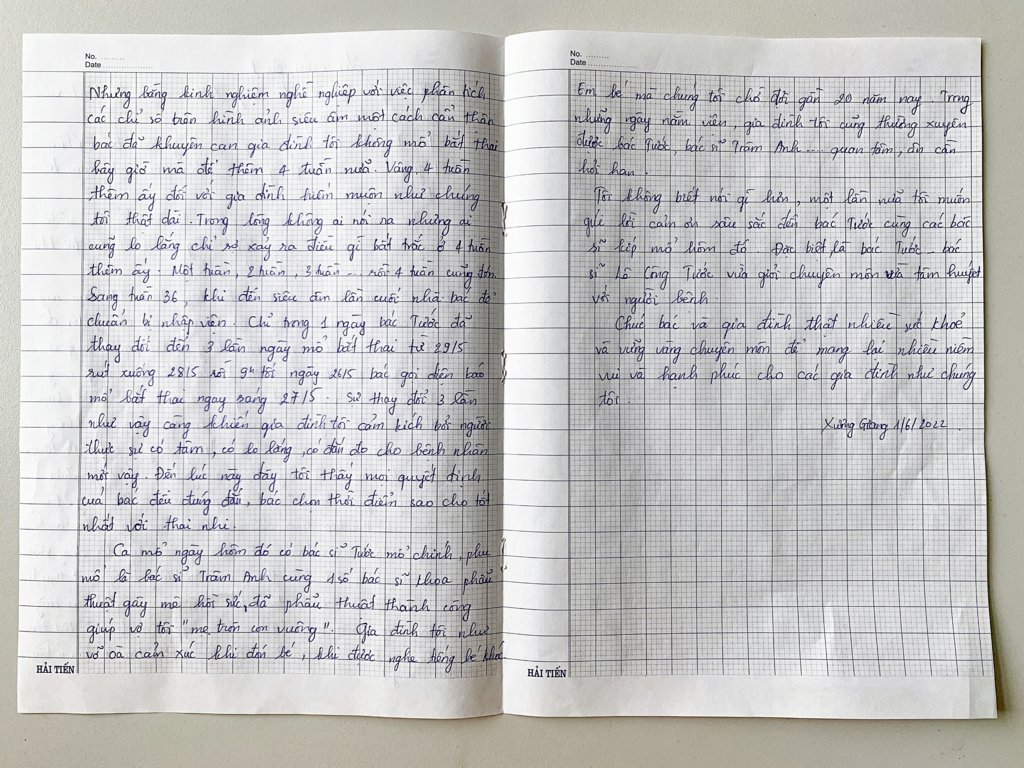 No. ..........
Date ....................
Nhưng bằng kinh nghiệm nghề nghiệp với việc phân tích
các chỉ số trên hình ảnh siêu âm một cách cẩn thận
bác đã khuyên can gia đình tôi không mổ bắt thai
bây giờ mà để thêm 4 tuần nữa. Vâng 4 tuần
thêm ấy đối với gia đình hiếm muộn như chúng
tôi thật dài. Trong lòng không ai nói ra nhưng ai
cũng lo lắng chỉ sợ xảy ra điều gì bất trắc ở 4 tuần
thêm ấy. Một tuần, 2 tuần, 3 tuần ... rồi 4 tuần cũng đến
Sang tuần 36, khi đến siêu âm lần cuối nhà bác đã
chuẩn bị nhập viện. Chỉ trong 1 ngày bác Tước đã
thay đổi đến 3 lần ngày mổ bắt thai từ 29/5
rút xuống 28/5 rồi 9h tối ngày 26/5 bác gọi điện báo
mổ bắt thai ngay sáng 27/5. Sự thay đổi 3 lần
như vậy càng khiến gia đình tôi cảm kích bởi người
thực sự có tâm, có lo lắng, có đắn đo cho bệnh nhân
mới vậy. Đến lúc này đây tôi thấy mọi quyết định
của bác đều đúng đắn, bác chọn thời điểm sao cho tốt
nhất với thai nhi.
Ca mổ ngày hôm đó có bác sĩ Tước mổ chính, phụ
mổ là bác sĩ Trâm Anh cùng 1 số bác sĩ khoa phẫu
thuật gây mê hồi sức, đã phẫu thuật thành công
giúp vợ tôi "mẹ tròn con vuông". Gia đình tôi như
vỡ oà cảm xúc khi đón bé, khi được nghe tiếng bé khóc
HẢI TIẾN
No. ..........
Date ....................
Em bé mà chúng tôi chờ đợi gần 20 năm nay. Trong
những ngày nằm viện, gia đình tôi cũng thường xuyên
được bác Tước, bác sĩ Trâm Anh .... quan tâm, ân cần
hỏi han.
Tôi không biết nói gì hơn, một lần nữa tôi muốn
gửi lời cảm ơn sâu sắc đến bác Tước cùng các bác
sĩ kíp mổ hôm đó. Đặc biệt là bác Tước - bác
sĩ Lê Công Tước vừa giỏi chuyên môn và tâm huyết
với người bệnh.
Chúc bác và gia đình thật nhiều sức khoẻ
và vững vàng chuyên môn để mang lại nhiều niềm
vui và hạnh phúc cho các gia đình như chúng
tôi.
Xương Giang 1/6/2022.
HẢI TIẾN